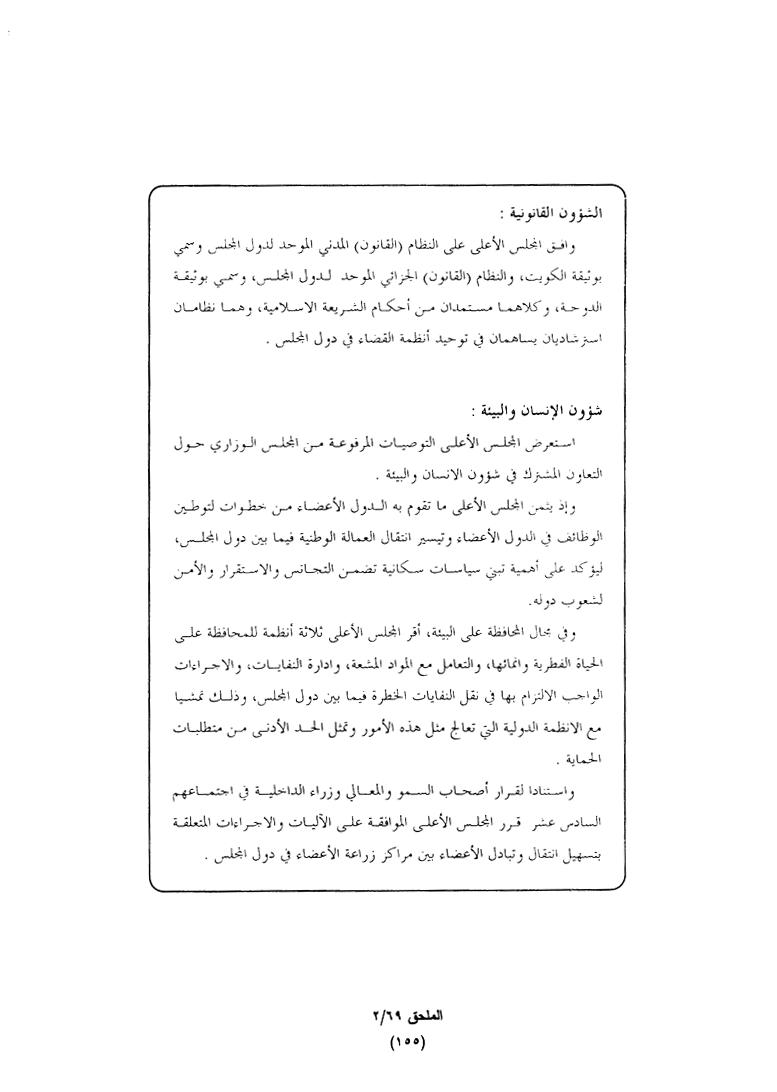 الشؤون القانونية :
وافـق المجلس الأعلى على النظام (القانون) المدني الموحد لدول المجلس وسمي
بوثيقة الكويت، والنظام (القانون) الجزائي الموحد لـدول المجلـس، وسمـي بوثيقـة
الدوحـة، وكلاهمـا مسـتمدان مـن أحكـام الشـريعة الاسـلامية، وهمـا نظامـان
استرشاديان يساهمان في توحيد أنظمة القضاء في دول المجلس .
شؤون الإنسان والبيئة :
اسـتعرض المجلـس الأعلـى التوصيـات المرفوعـة مـن المجلـس الـوزاري حـول
التعاون المشترك في شؤون الانسان والبيئة .
وإذ يثمن المجلس الأعلى ما تقوم به الـدول الأعضـاء مـن خطـوات لتوطـين
الوظائف في الدول الأعضاء وتيسير انتقال العمالة الوطنية فيما بين دول المجلـس،
ليؤكد على أهمية تبني سياسـات سـكانية تضمـن التجـانس والاسـتقرار والأمـن
لشعوب دوله.
وفي مجال المحافظة على البيئة، أقر المجلس الأعلى ثلاثة أنظمة للمحافظة علـى
الحياة الفطرية وانمائها، والتعامل مع المواد المشعة، وادارة النفايـات، والاجـراءات
الواجب الالتزام بها في نقل النفايات الخطرة فيما بين دول المجلس، وذلـك تمشـيا
مع الانظمة الدولية التي تعالج مثل هذه الأمور وتمثل الحـد الأدنـى مـن متطلبـات
الحماية .
واسـتنادا لقـرار أصحـاب السـمو والمعـالي وزراء الداخليـة في اجتمـاعهم
السادس عشر قرر المجلس الأعلى الموافقة على الآليات والاجراءات المتعلقة
بتسهيل انتقال وتبادل الأعضاء بين مراكز زراعة الأعضاء في دول المجلس .
الملحق ٢/٦٩
(١٥٥)